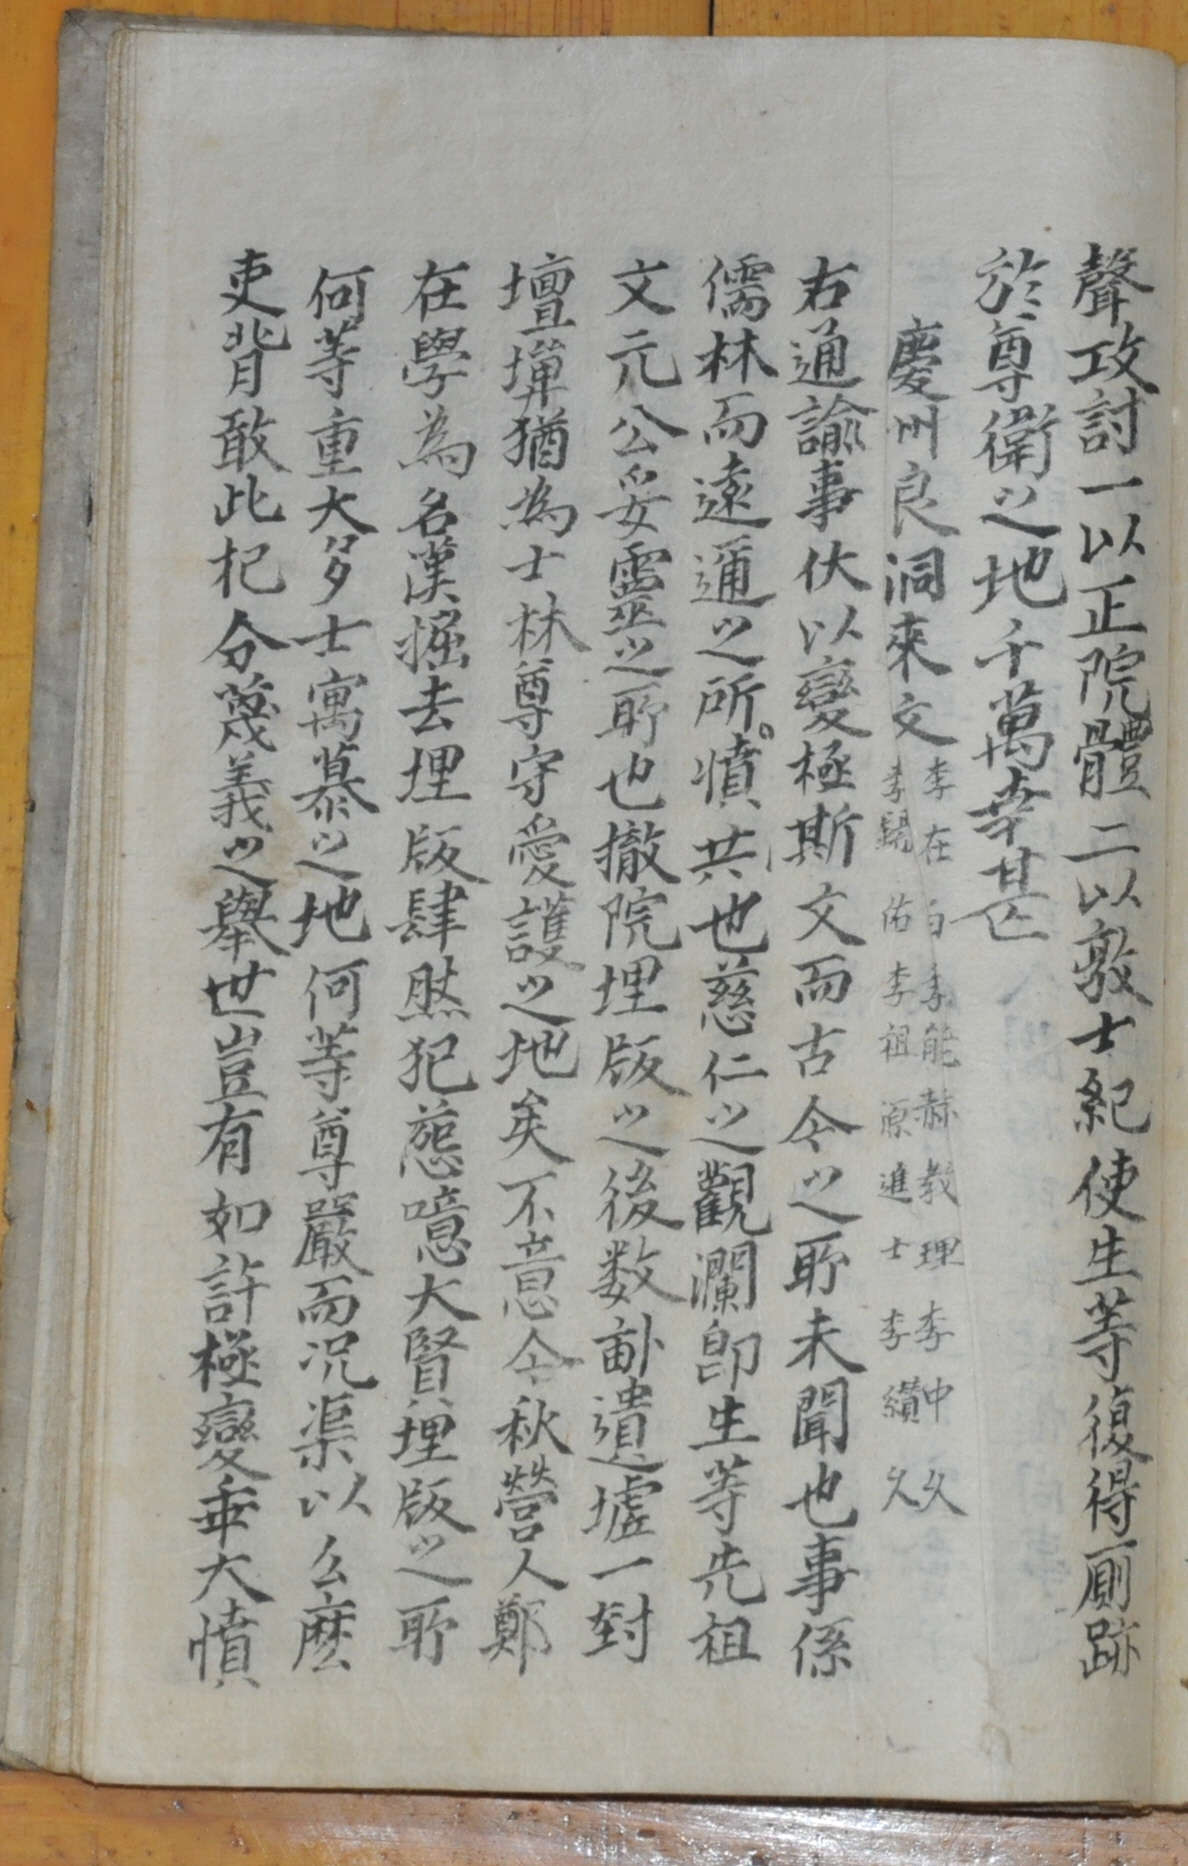 聲攻討一以正院體二以敦士紀使生等復得廁跡
於尊衛之地千萬幸甚
慶州良洞來文
李在白李能赫教理李中久
李錫佑李祖原進士李纘久
右通諭事伏以變極斯文而古今之所未聞也事係
儒林而遠邇之所憤共也慈仁之觀瀾卽生等先祖
文元公妥靈之所也撤院埋版之後数畝遺墟一封
壇墠猶為士林尊守愛護之地矣不意今秋營人鄭
在學為名漢掘去埋版肆然犯葬噫大賢埋版之所
何等重大多士寓慕之地何等尊嚴而况渠以么麽
吏背敢此犯分蔑義之擧世豈有如許極變乖大憤